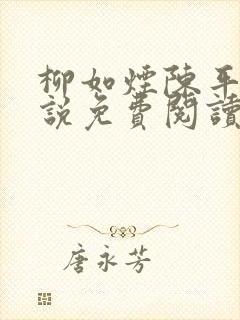 柳如煙陳平
說免費閱讀
唐永芳